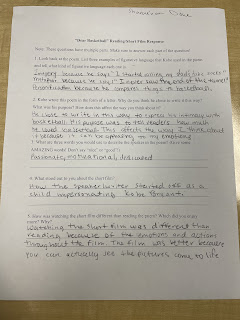 "Dear Basketball" Reading/Short Film Response
Note: These questions have multiple parts. Make sure to answer each part of the question.
1. Look back at the poem. List three examples of figurative language that Kobe used in the poem
and tell what kind of figurative language each one is.
Imagery because he says "I started rolling my dad's tube socks"
because he says "I never saw the end of the tunnel"
because he compares things to basketball.
2. Kobe wrote this poem in the form of a letter. Why do you think he chose to write it this way?
What was his purpose? How does this affect the way you think about it?
He chose to write in this way to express his intimacy with
basketball. His purpose was to tell readers how much
he loved basketball. This affects the way I think about
it because it can be applying to my emotions
3. What are three words you would use to describe the speaker in the poem? Know some
AMAZING words! Don't use "nice" or "good"!)
Passionate, motivational, dedicated
4. What stood out to you about the short film?
How the speaker/writer started off as a
child impersonating Kobe Bryant.
5. How was watching the short film different than reading the poem? Which did you enjoy
more? Why?
Watching the short film was different than
reading because of the emotions and actions
throughout the film. The film was better because
you can actually see the pictures come to life